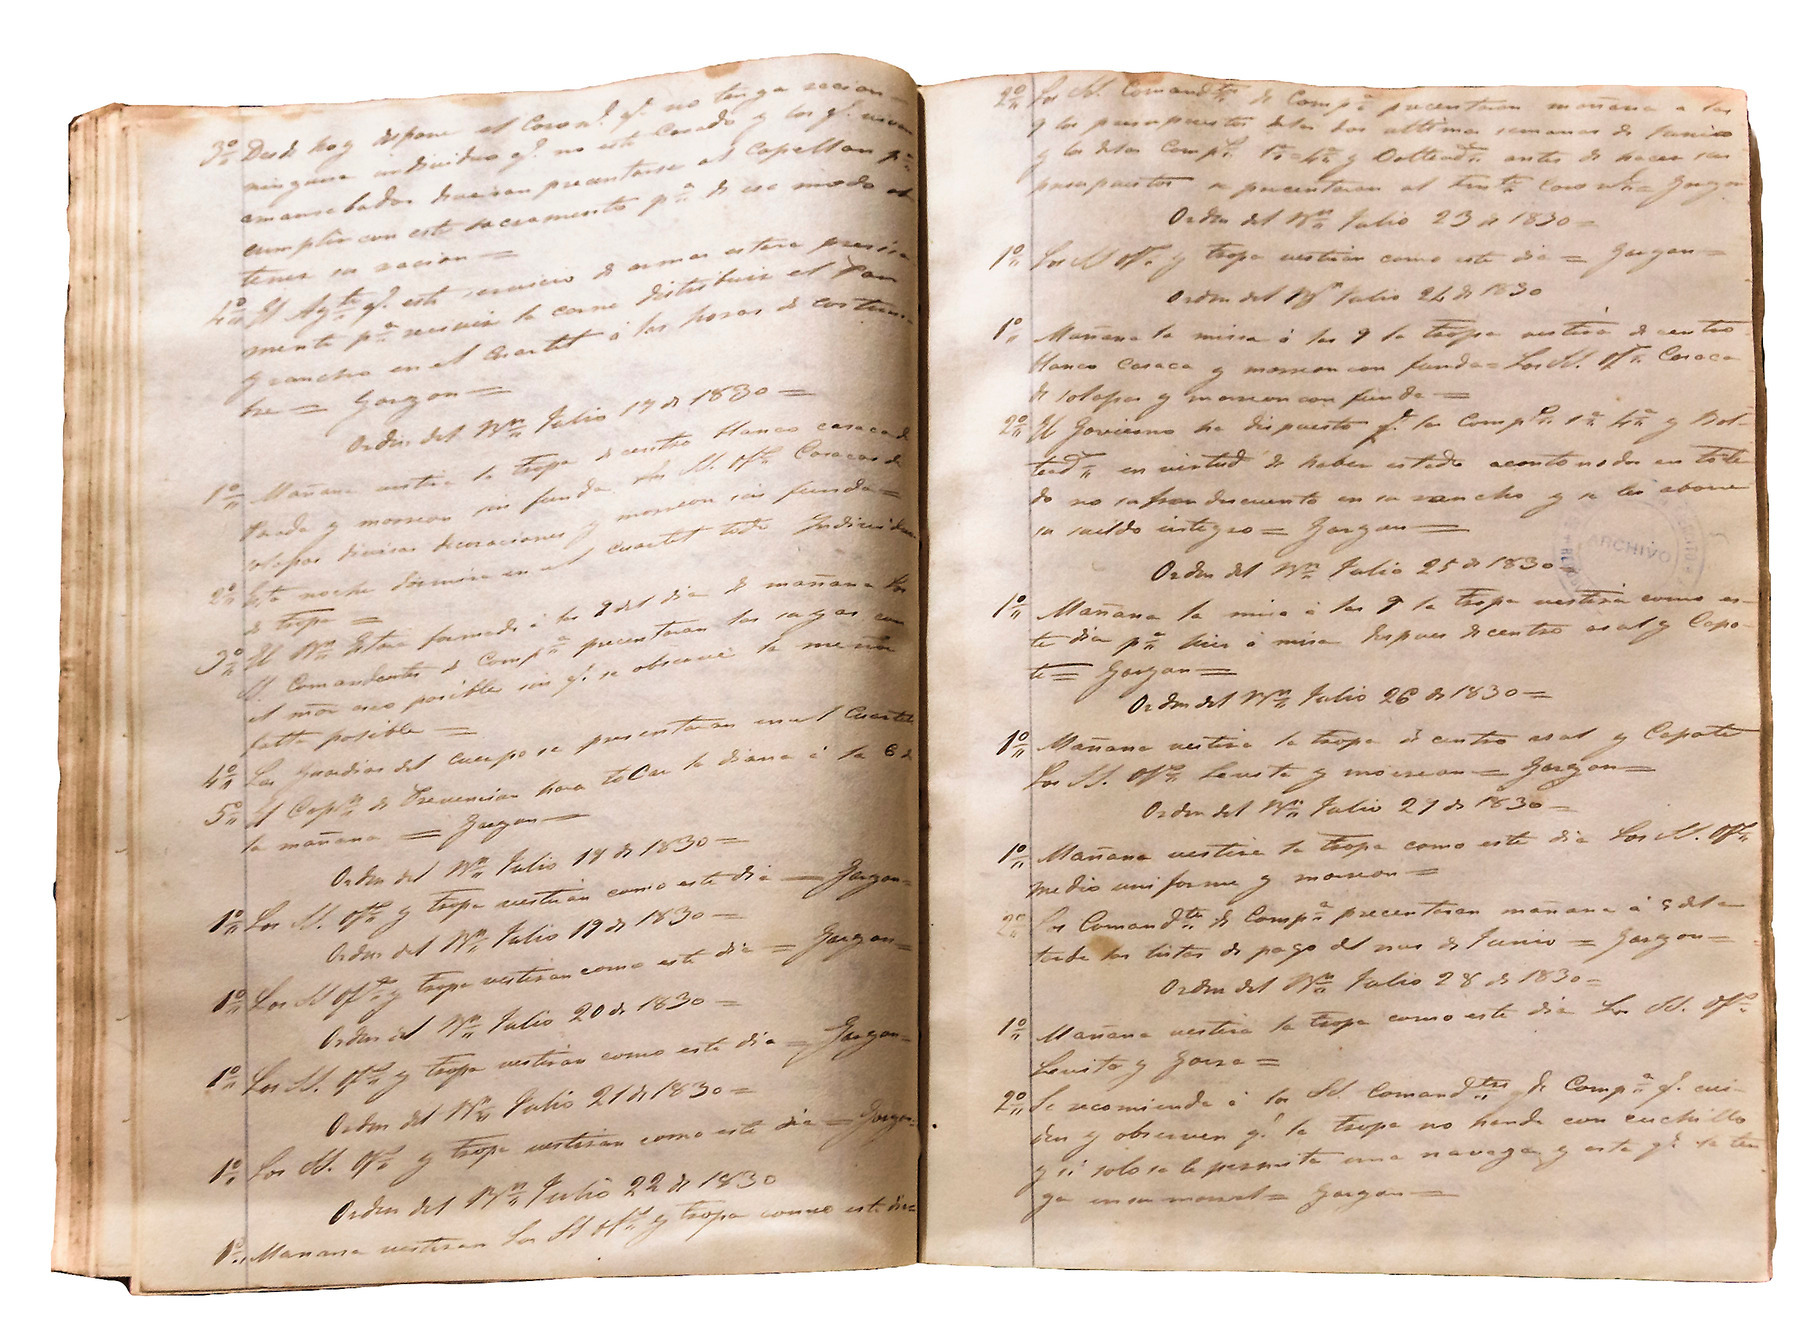 3º Desde hoy dispone el Coronl. qe. no tenga racion
ninguna individuo qe. no este Casado y los qe. esten
amansebados deveran precentarse al Capellan pa.
cumplir con este sacramento pa. de ese modo
tener su racion =
4º El Ayte. qe. este servicio de armas estara presisa
mente pa. recivir la carne distribuir el Pan
y rancho en el Cuartel á las horas de costum
bre = Gorgon =
Orden del Bn. Julio 17 de 1830 =
1º Mañana vestira la tropa de centro blanco casaca de
Parada y morreon sin funda los SS. Ofs. Casacas de
solapas divisas decoraciones y morreon sin funda =
2º Esta noche dormira en el cuartel todo Individuo
de tropa =
3º El Bn. estara formado á las 9 del dia de mañana los
SS. Comandantes de Compa. precentaran las suyas con
el mor aseo posible sin qe. se observe la menor
falta posible =
4º Las Guardias del cuerpo se presentaran en el Cuartel
5º El Capn. de Prevencion hara toCar la diana á la 6 de
la mañana = Gorgon =
Orden del Bn. Julio 18 de 1830 =
1º Los SS. Ofs. y tropa vestiran como este dia = Gorgon =
Orden del Bn. Julio 19 de 1830 =
1º Los SS Ofs. y tropa vestiran como este dia = Gorgon =
Orden del Bn. Julio 20 de 1830 =
1º Los SS. Ofs. y tropa vestiran como este dia = Gorgon =
Orden del Bn. Julio 21 de 1830 =
1º Los SS. Ofs. y tropa vestiran como este dia = Gorgon
Orden del Bn. Julio 22 de 1830
1º Manana vestiran los SS Ofs. y tropa como este dia =
2º Los SS. Comandtes. de Compa. precentaran mañana a las
9 los presupuestos delas dos ultimas semanas de Junio
y los delas Comps. 1a. 4a. y Volteads. antes de hacer sus
presupuestos se precentaran al Tente. Coronl. = Gorgon
Orden del Bn. Julio 23 de 1830 =
1º Los SS Ofs. y tropa vestiran como este dia = Gorgon =
Orden del Bn. Julio 24 de 1830
1º Mañana la missa á las 9 la tropa vestira de centro
blanco casaca y morreon con funda = Los SS. Ofs. Casaca
de solapas y morreon con funda =
2º El Govierno ha dispuesto qe. las Comps. 1a. 4a. y Vol-
tead. en virtud de haber estado acantonados en
no sufran descuento en su rancho y se les abone
su sueldo integro = Gorgon =
Orden del Bn. Julio 25 de 1830
ARCHIVO
1º Mañana la misa á las 9 la tropa vestira como es-
te dia pa. hir á misa despues de centro asul y Capo-
te = Gorgon =
Orden del Bn. Julio 26 de 1830 =
1º Mañana vestira la tropa de centro asul y Capote
Los SS. Ofs. Levita y morreon = Gorgon =
Orden del Bn. Julio 27 de 1830 =
1º Mañana vestira la tropa como este dia Los SS. Ofs.
medio uniforme y morreon =
2º Los Comandtes. de Compa. precentaran mañana á 5 dela
tarde las listas de pago del mes de Junio = Gorgon =
Orden del Bn. Julio 28 de 1830 =
1º Mañana vestira la tropa como este dia Los SS. Ofs.
Levita y Gorra =
2º Se recomienda á los SS. Comandtes. de Compa. qe. cui-
den y observen qe. la tropa no hande con cuchillo
y si solo se le permita una navaja y esta qe. la ten
ga en su morral = Gorgon =